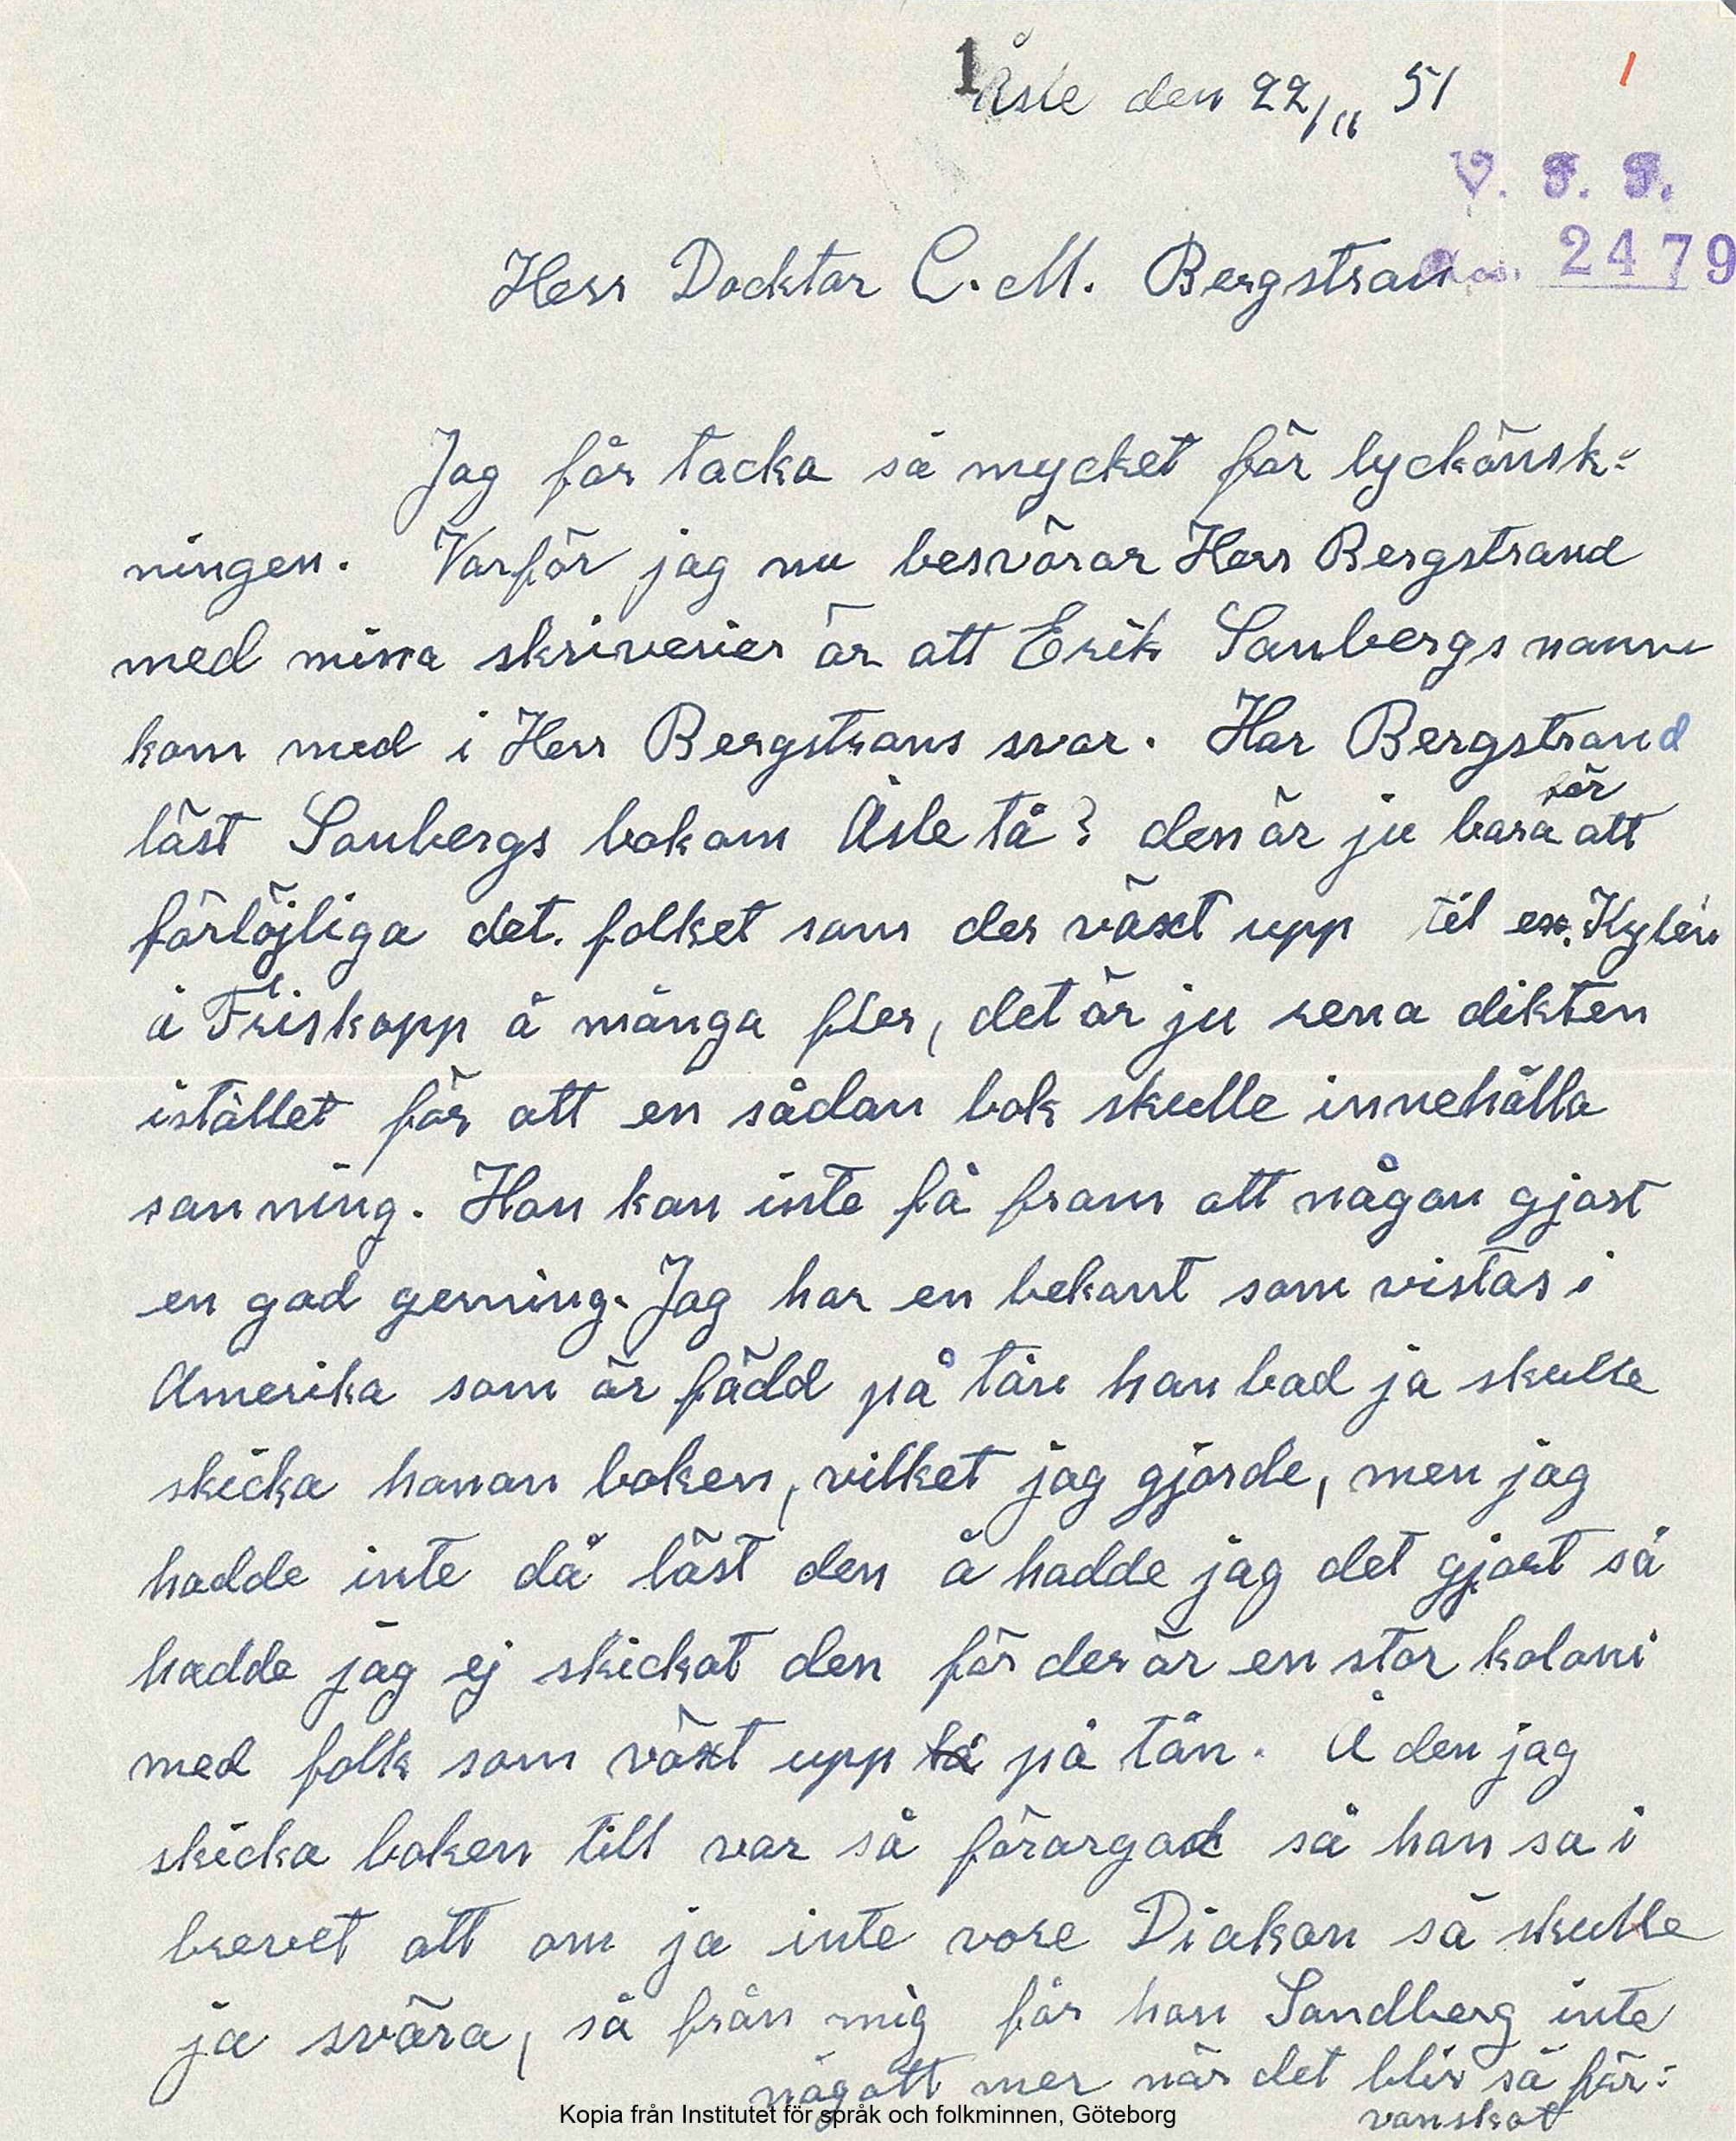 1
Åsle den 22/11 51
1
V. F. F.
2479
Herr Docktor C. M. Bergstran
Jag får tacka så mycket för lyckönsk-
ningen. Varför jag nu besvärar Herr Bergstrand
med mina skriverier är att Erik Sanbergs namn
kom med i Herr Bergstrans svar. Har Bergstrand
läst Sanbergs bok om Åsle tå? den är ju bara för att
förlöjliga det. folket som der växt upp til ex. Kylén
å Friskopp å många fler, det är ju rena dikten
istället för att en sådan bok skulle innehålla
sanning. Han kan inte få fram att någon gjort
en god gerning. Jag har en bekant som vistas i
Amerika som är född på tån han bad ja skulle
skicka honon boken, vilket jag gjorde, men jag
hadde inte då läst den å hadde jag det gjort så
hadde jag ej skickat den för der är en stor koloni
med folk som växt upp tå på tån. Å den jag
skicka boken till var så förargad så han sa i
brevet att om ja inte vore Diakon så skulle
ja svära, så från mig får han Sandberg inte
någott mer när det blir så för-
vanskat
Kopia från Institutet för språk och folkminnen, Göteborg